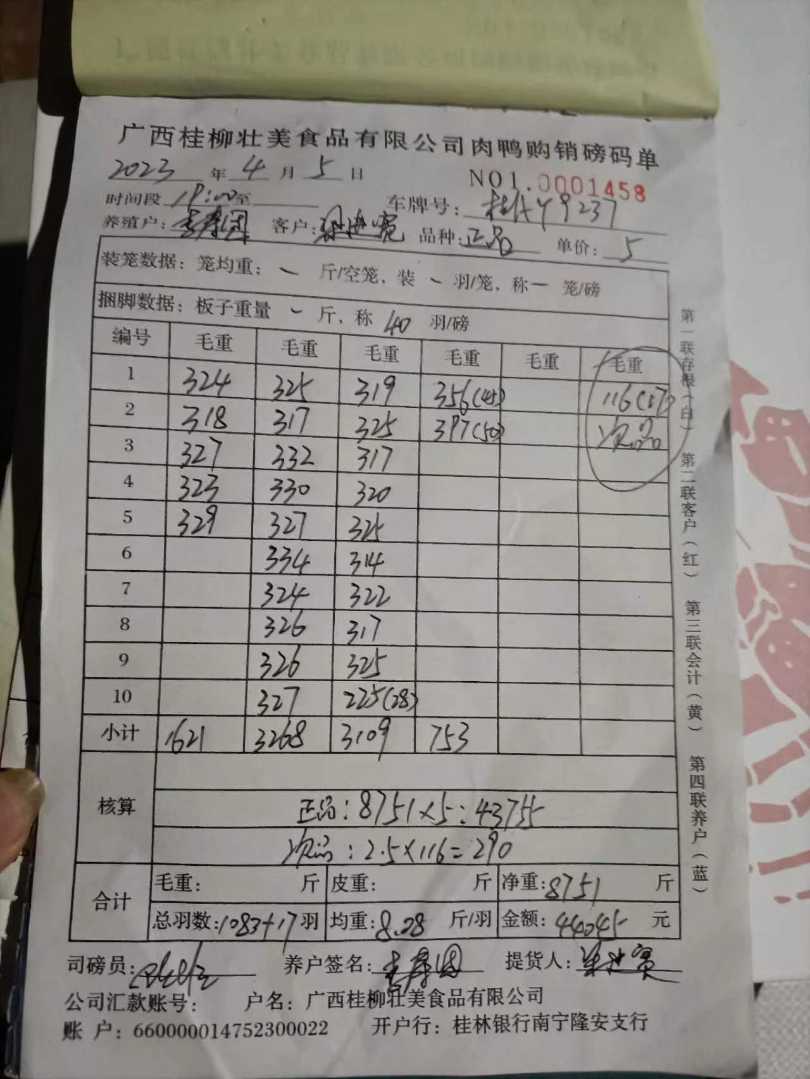 广西桂柳壮美食品有限公司肉鸭购销磅码单
2023 年 4 月 5 日 NO1.0001458
时间段 19:00至 车牌号: 桂AY9237
养殖户: 客户: 品种: 正品 单价: 5
装笼数据: 笼均重: 一 斤/空笼, 装 一 羽/笼, 称 一 笼/磅
捆脚数据: 板子重量 一 斤, 称 40 羽/磅
编号 毛重 毛重 毛重 毛重 毛重 毛重
1 324 325 319 356(45) 116(17)
2 318 317 325 397(50) 次品
3 327 332 317
4 323 330 320
5 329 327 325
6 334 314
7 324 322
8 326 317
9 326 325
10 327 225(28)
小计 1621 3268 3109 753
核算
正品: 8751×5: 43755
次品: 2.5×116=290
合计 毛重: 斤 皮重: 斤 净重: 8751 斤
总羽数: 1083+17 羽 均重: 8.08 斤/羽 金额: 44045 元
司磅员: 养户签名: 提货人:
公司汇款账号: 户名: 广西桂柳壮美食品有限公司
账 户: 660000014752300022 开户行: 桂林银行南宁隆安支行
第一联存根(白) 第二联客户(红) 第三联会计(黄) 第四联养户(蓝)